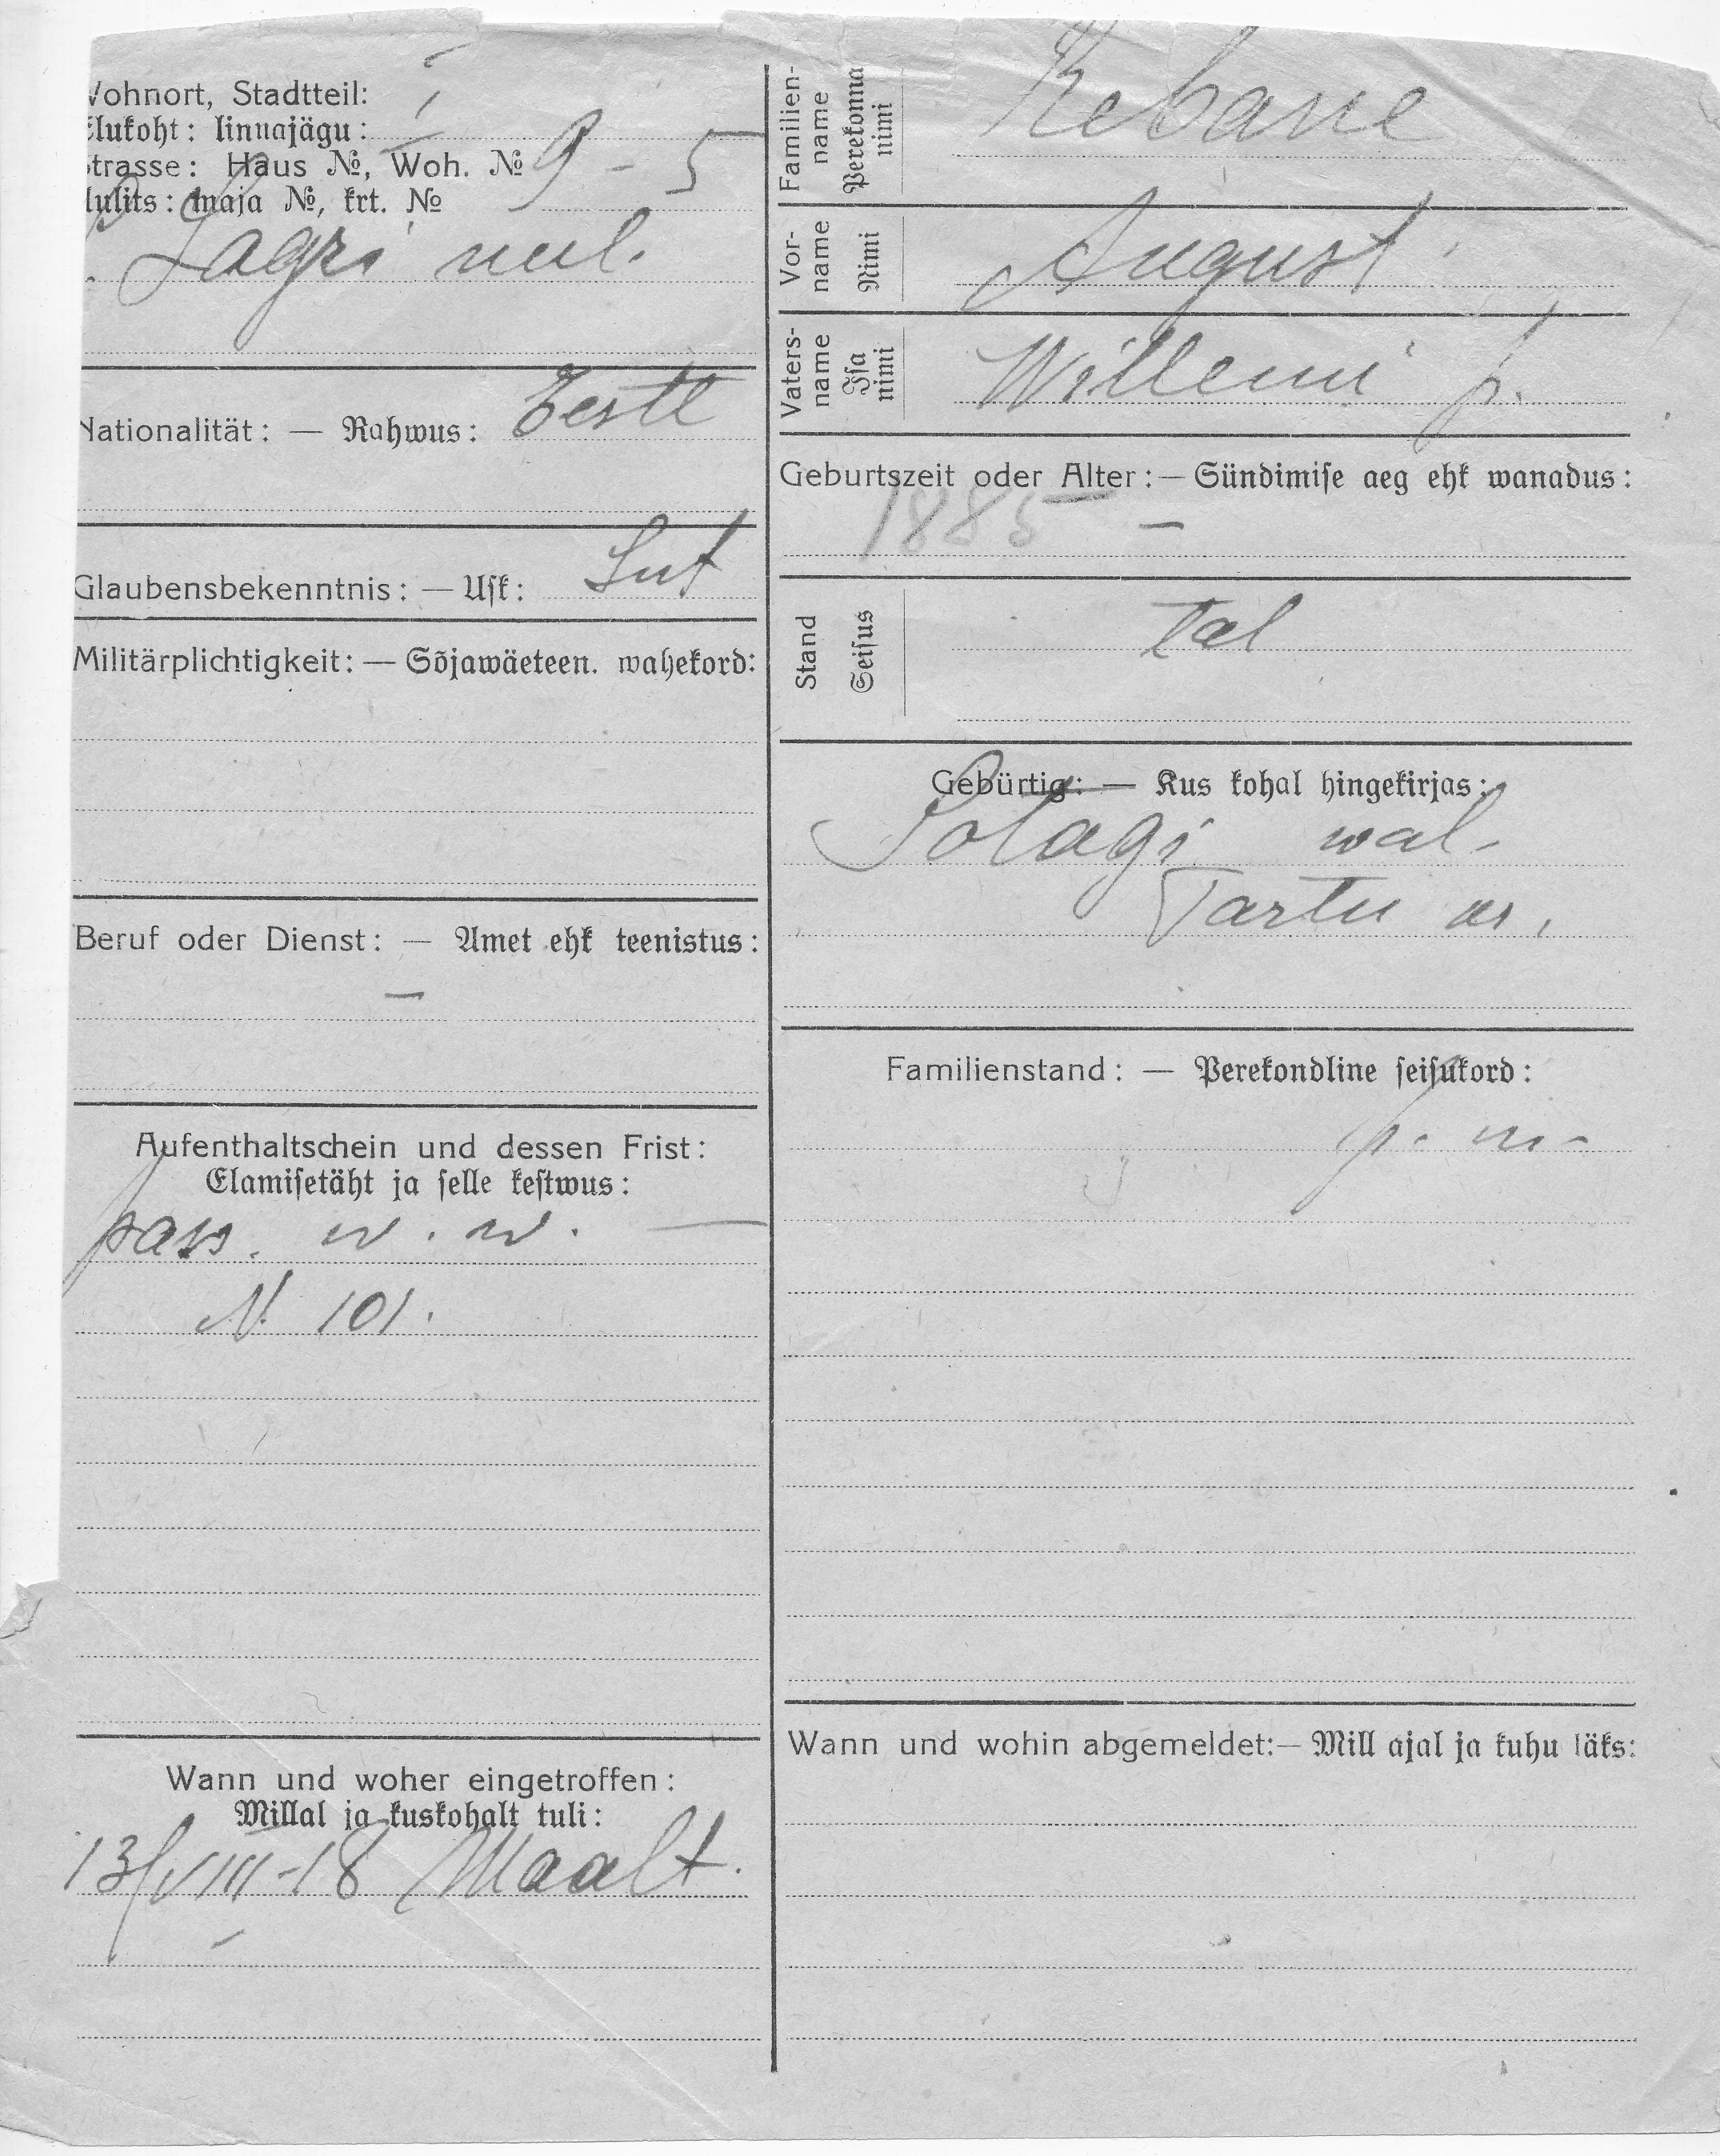 Wohnort, Stadtteil:
Elukoht: linnajägu: I
Strasse: Haus №, Woh. № 9 - 5
Uulits: maja №, krt. №
uul.
Nationalität: — Rahwus: Eestl
Glaubensbekenntnis: — Usk: Lut
Militärplichtigkeit: — Sõjawäeteen. wahekord:
Beruf oder Dienst: — Amet ehk teenistus:
—
Aufenthaltschein und dessen Frist:
Elamisetäht ja selle kestwus:
pass. w. w. —
N. 101.
Wann und woher eingetroffen:
Millal ja kuskohalt tuli:
13/VIII-18 Maalt.
Familien-
name
Perekonna
nimi
Rebane
Vor-
name
Nimi
August
Vaters-
name
Isa
nimi
Willemi p.
Geburtszeit oder Alter: — Sündimise aeg ehk wanadus:
1885 —
Stand
Seisus
Tal
Gebürtig: — Kus kohal hingekirjas:
wal.
Tartu
Familienstand: — Perekondline seisukord:
p. m.
Wann und wohin abgemeldet: — Mill ajal ja kuhu läks: